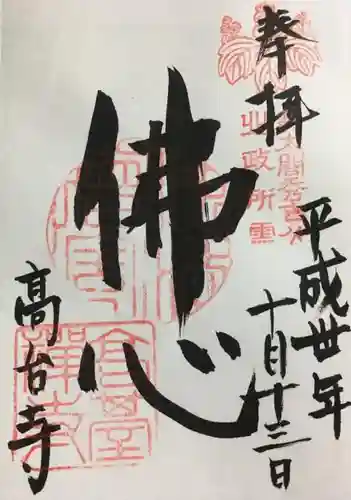 奉拝
平成丗年
十月十三日
佛心
高台寺